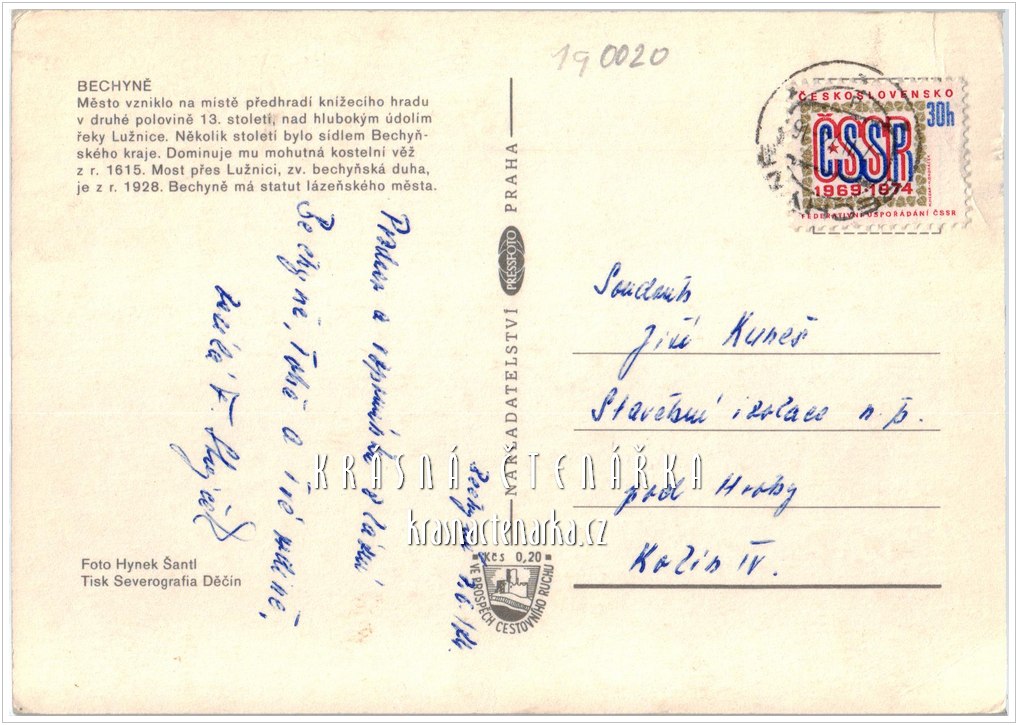 190020
BECHYNĚ
Město vzniklo na místě předhradí knížecího hradu
v druhé polovině 13. století, nad hlubokým údolím
řeky Lužnice. Několik století bylo sídlem Bechyň-
ského kraje. Dominuje mu mohutná kostelní věž
z r. 1615. Most přes Lužnici, zv. bechyňská duha,
je z r. 1928. Bechyně má statut lázeňského města.
Foto Hynek Šantl
Tisk Severografia Děčín
Bechyně
Pozdrav a
Bechyně,
a
NAKLADATELSTVÍ PRESSFOTO PRAHA
Kčs 0,20
VE PROSPĚCH CESTOVNÍHO RUCHU
ČESKOSLOVENSKO
30h
ČSSR
1969-1974
FEDERATIVNÍ USPOŘÁDÁNÍ ČSSR
Soudruh
Jiří Kuneš
Stavební izolace n. p.
pod Hroby
Kolín IV.
KRÁSNÁ ČTENÁŘKA
krasnactenarka.cz